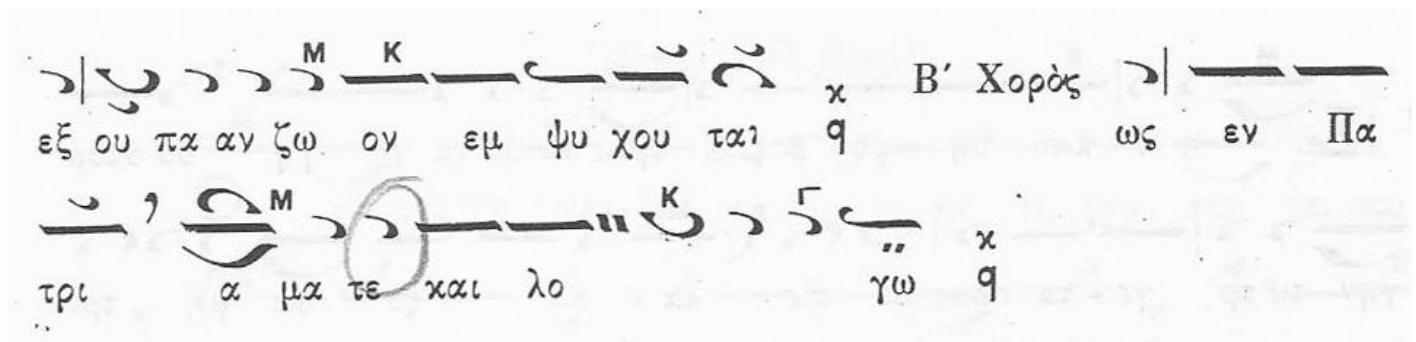 Μ Κ Β΄ Χορὸς
εξ ου πα αν ζω ον εμ ψυ χου ται ϗ q ως εν Πα
Μ Κ Γ
τρι α μα τε και λο γω ϗ q